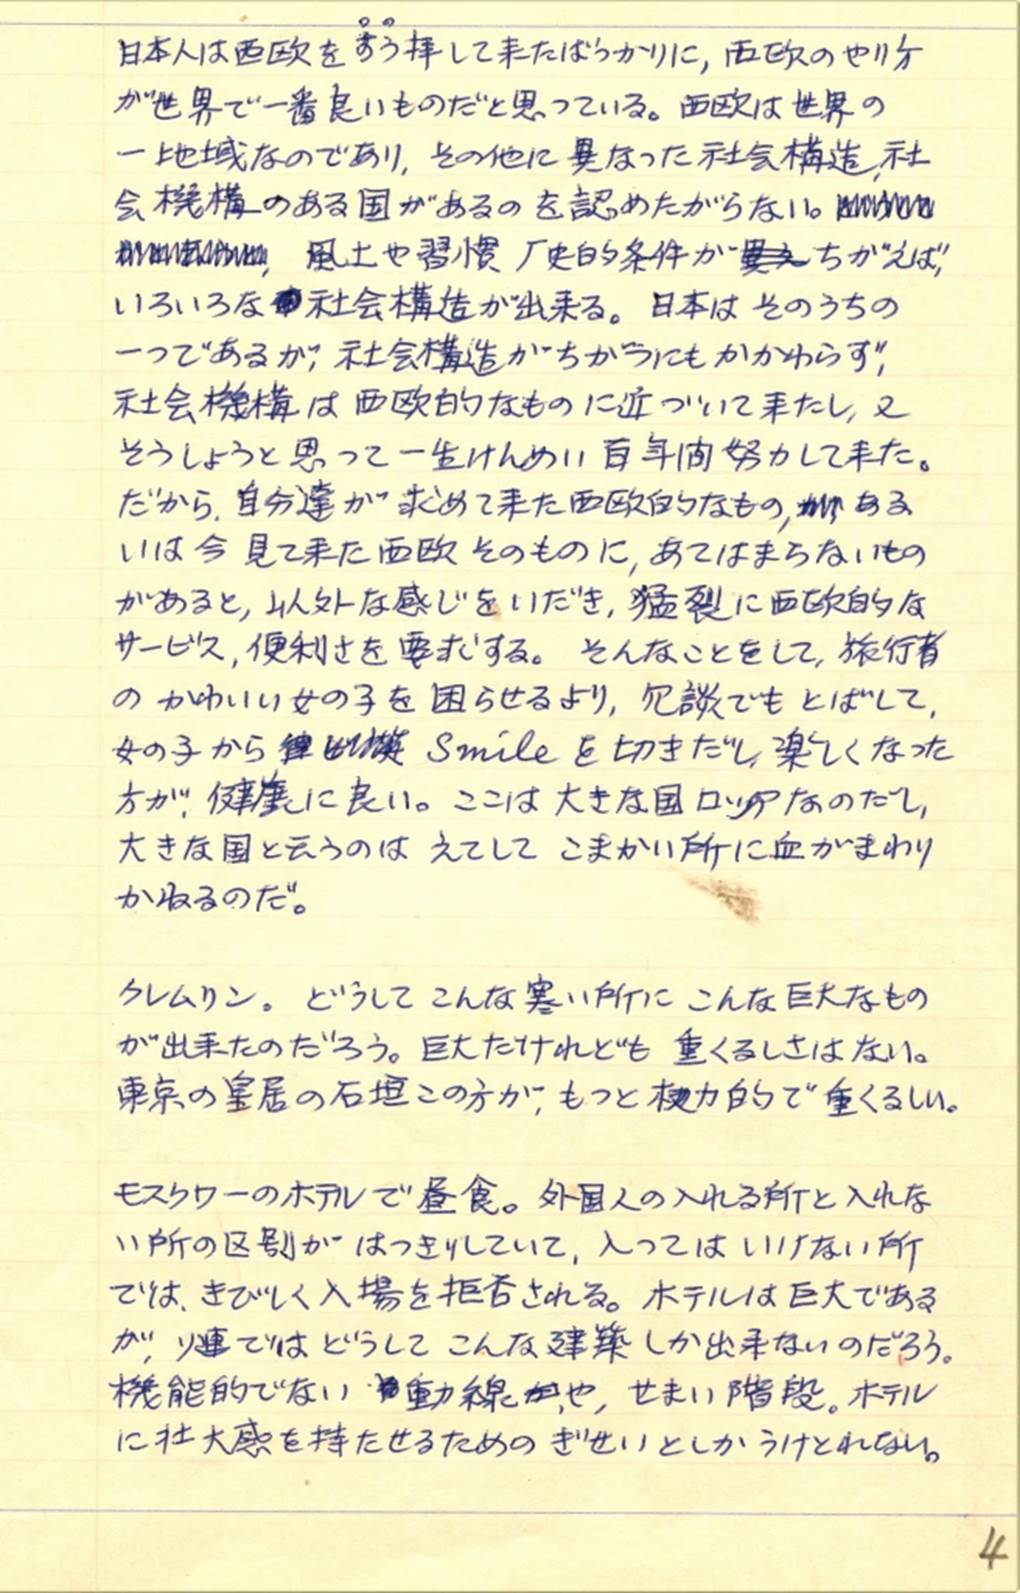 日本人は西欧をすう拝して来たばっかりに, 西欧のやり方
が世界で一番良いものだと思っている。西欧は世界の
一地域なのであり, その他に異なった社会構造, 社
会機構のある国があるのを認めたがらない。
風土や習慣 歴史的条件がちがえば,
いろいろな社会構造が出来る。日本はそのうちの
一つであるが, 社会構造がちがうにもかかわらず,
社会機構は西欧的なものに近づいて来たし, 又
そうしょうと思って一生けんめい百年間努力して来た。
だから, 自分達が求めて来た西欧的なもの, ある
いは今見て来た西欧そのものに, あてはまらないもの
があると, 以外な感じをいだき, 猛裂に西欧的な
サービス, 便利さを要求する。そんなことをして, 旅行者
のかわいい女の子を困らせるより, 冗談でもとばして,
女の子から Smile を切きだし, 楽しくなった
方が, 健康に良い。ここは大きな国ロッシアなのだし,
大きな国と云うのはえてしてこまかい所に血がまわり
かねるのだ。
クレムリン。どうしてこんな寒い所にこんな巨大なもの
が出来たのだろう。巨大だけれども重くるしさはない。
東京の皇居の石垣この方が, もっと権力的で重くるしい。
モスクワーのホテルで昼食。外国人の入れる所と入れな
い所の区別がはっきりしていて, 入ってはいけない所
では, きびしく入場を拒否される。ホテルは巨大である
が, ソ連ではどうしてこんな建築しか出来ないのだろう。
機能的でない動線や, せまい階段。ホテル
に壮大感を持たせるためのぎせいとしかうけとれない。
4